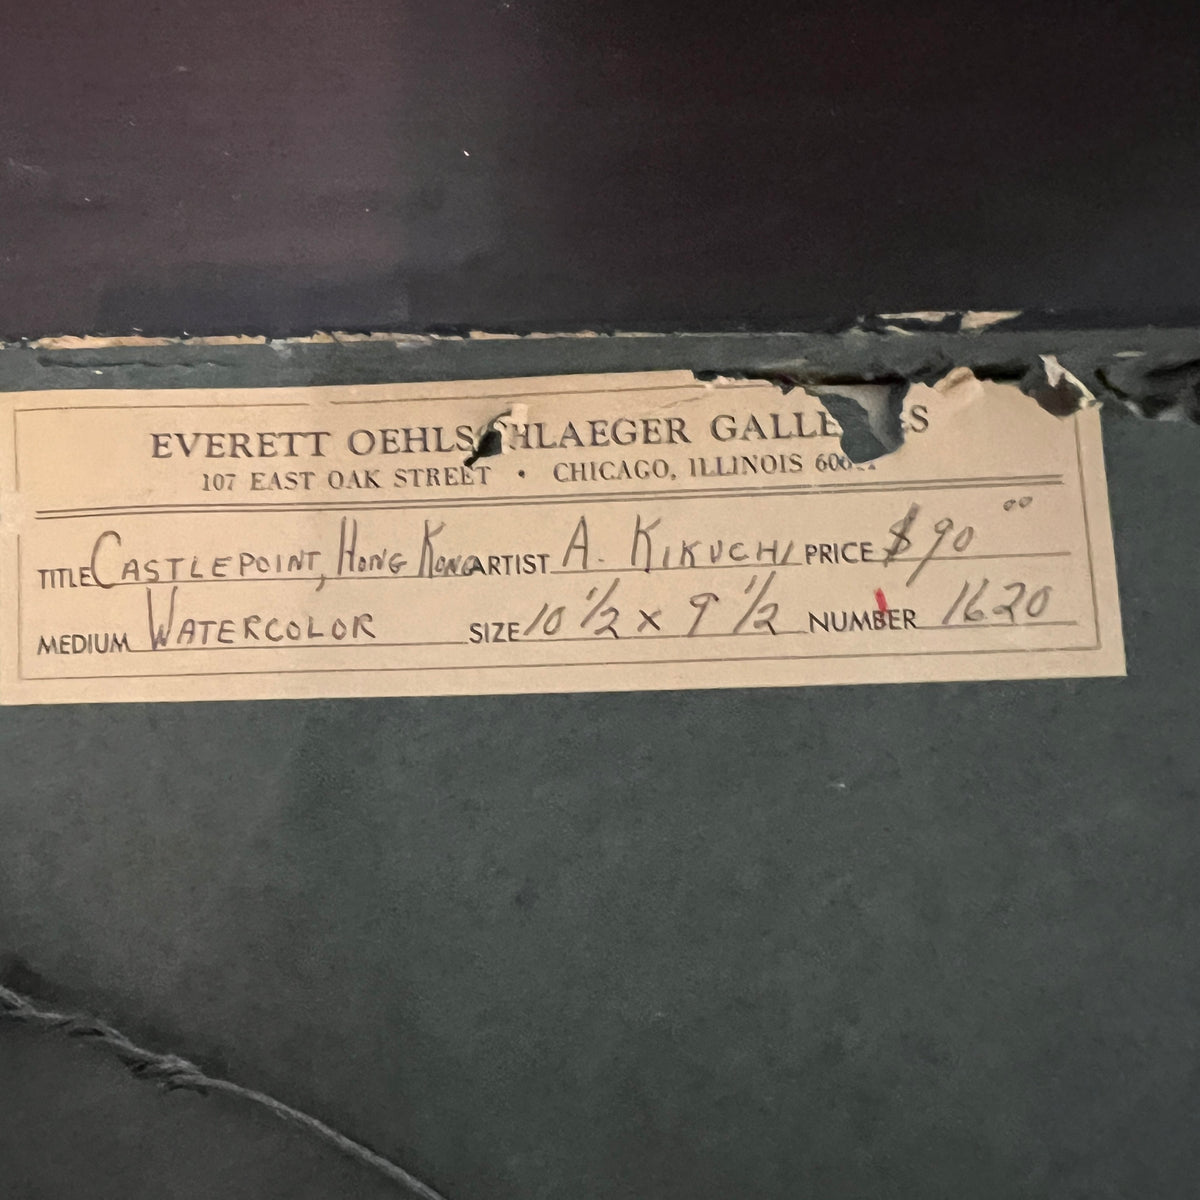 EVERETT OEHLSCHLAEGER GALLERIES
107 EAST OAK STREET • CHICAGO, ILLINOIS
TITLE CASTLEPOINT, HONG KONG ARTIST A. KIKUCHI PRICE $90.00
MEDIUM WATERCOLOR SIZE 10 1/2 x 9 1/2 NUMBER 1620